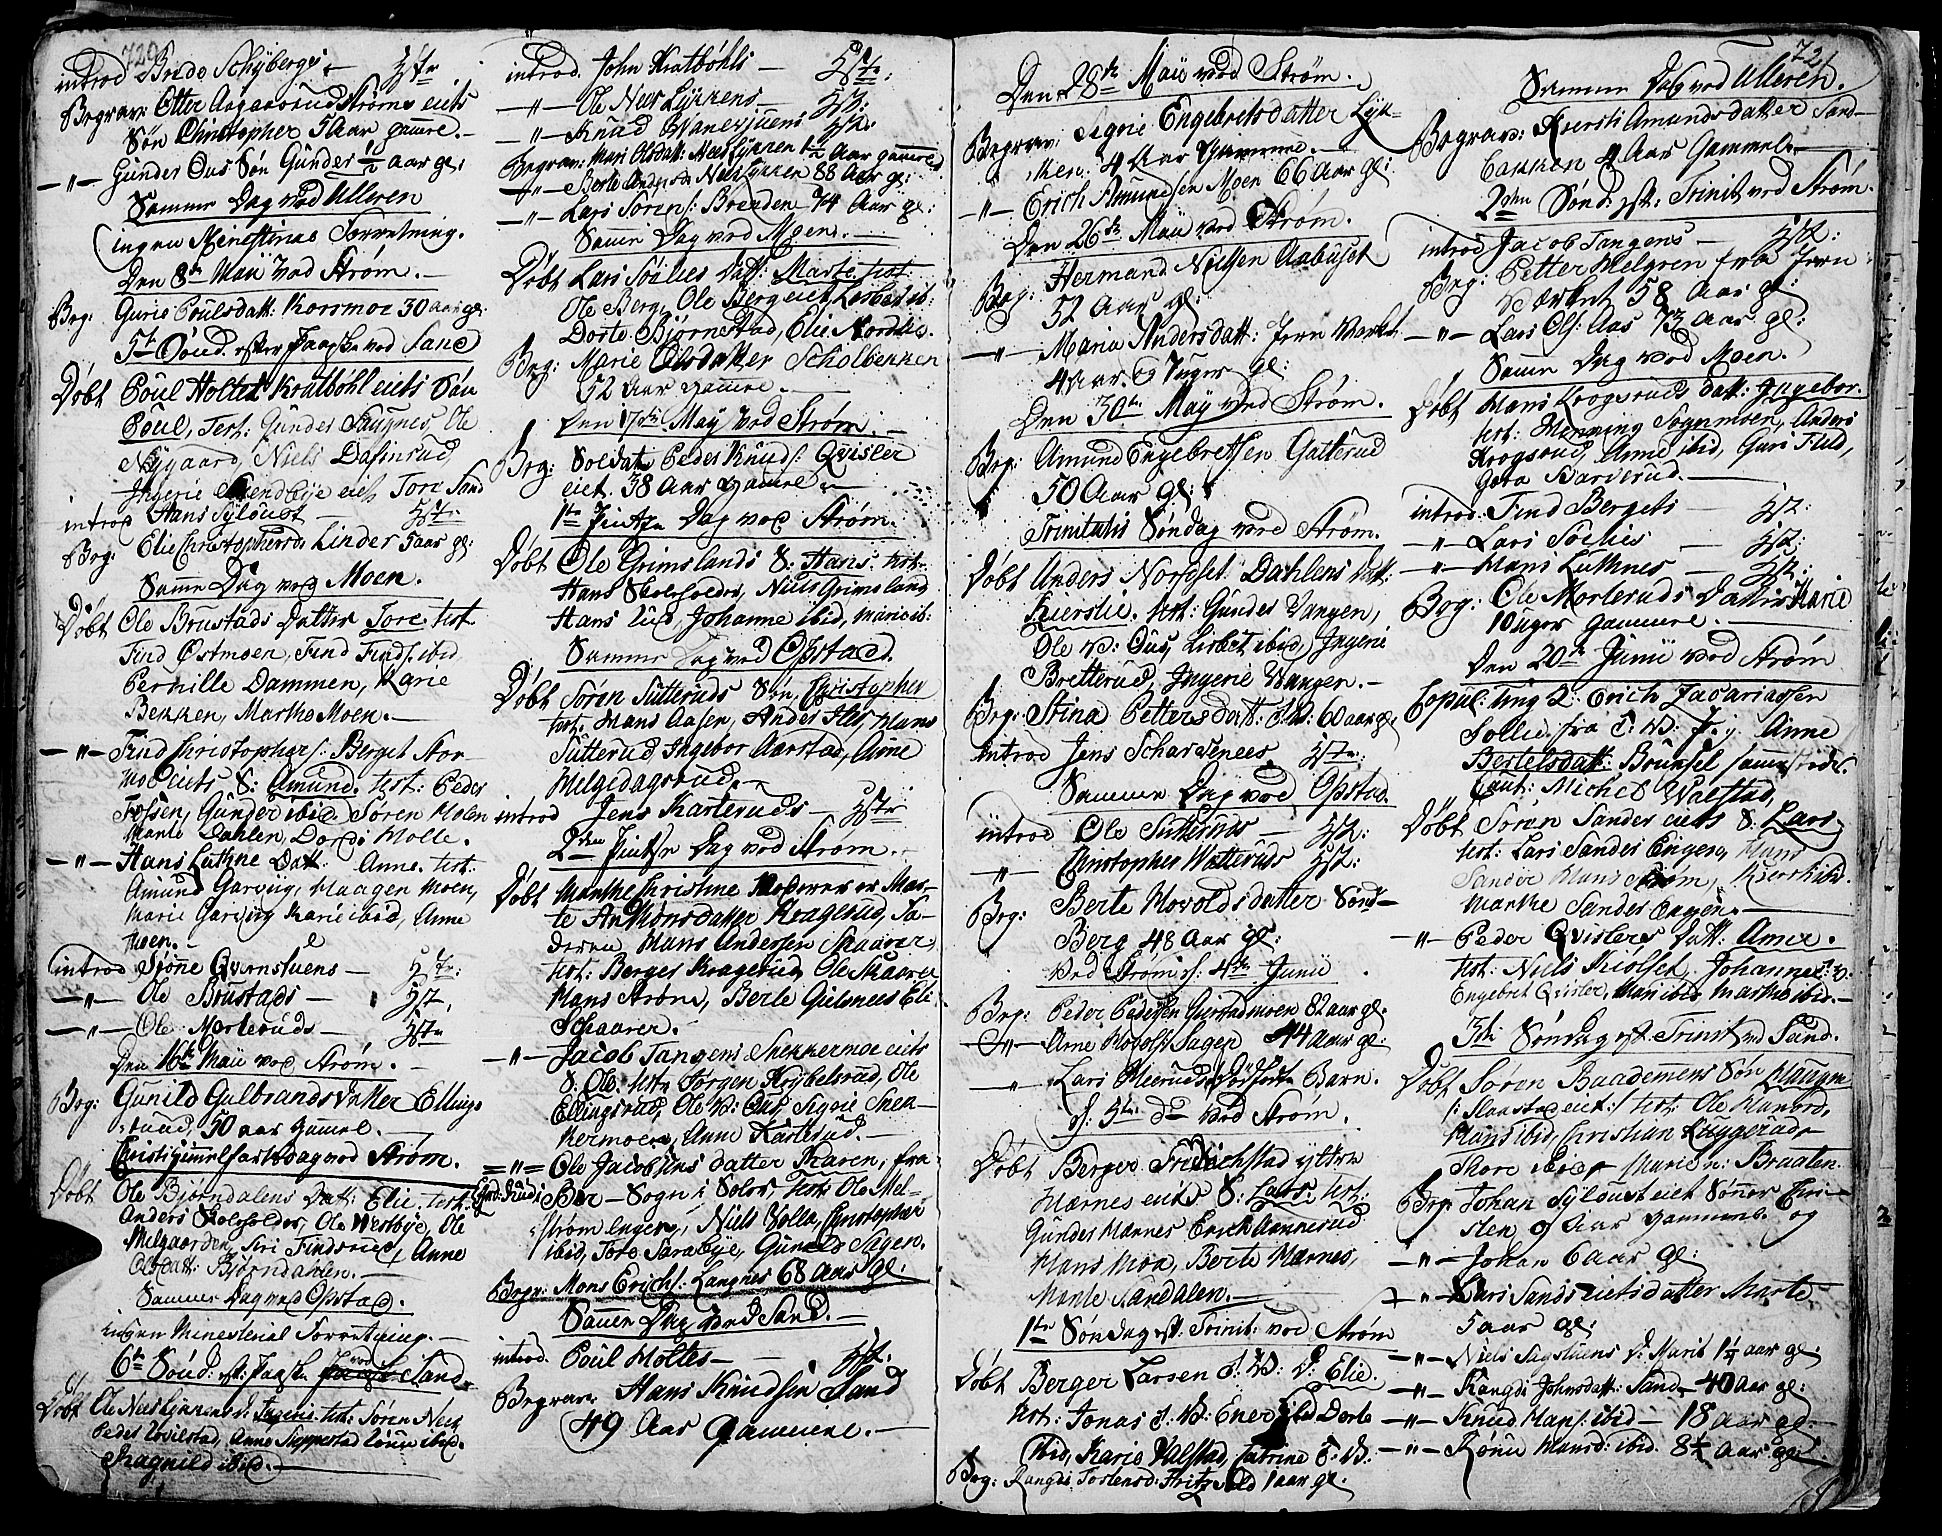 720
introd Brede Schÿbergs – zst
Begrav: Otter Aagaarsrud Strøms eiets
Søn Christopher 5 Aar gamle.–
–"– Gunder Ous Søn Gunder 1½ aar gl:
Samme Dag ved Ullern
ingen Ministerial Forretning.
Den 8de Maii ved Strøm.–
Beg: Gurie Poulsdatt: Korsmoe 30 aar gl:
5te Sønd. efter Paaske ved Sand
Døbt Poul Holtet Kratbøhl eiets Søn
Poul, Test: Gunder Saugnes, Ole
Nÿgaard, Niels Dasinrud,
Ingerie eiet, Tore Sand
introd Hans Sÿloust –
Beg: Elie Christophersd. Linder 5 aar gl:
Samme Dag ved Moen.
Døbt Ole Brustads Datter Tore test.
Find Østmoen, Find Finds: ibid
Pernille Dammen, Karie
Bekken, Marthe Moen.–
–"– Find Christophers: Berget Stor-
moe eiets S: Amund. test: Peder
Fossen, Gunder ibid Søren Molen
Marte Dahlen, Dordi Molle.
–"– Hans Luthne Datt: Anne. test:
Amund Garvig, Haagen Moen,
Marie Garvig Karie ibid, Anne
Moen.–
introd Sjønne Qvernstuens –
–"– Ole Brustads –
–"– Ole Morteruds –
Den 16de Maii ved Strøm.–
Beg: Gunild Gulbrandsdatter Ellings-
ruud, 50 aar gamel.–
Christi himmelfartsdag ved Strøm.
Døbt Ole Bjørndalens Datt: Elie, test:
Anders Skoleholder, Ole Westbÿe, Ole
Melgaarden, Siri Findsrud, Anne
Olsdatt: Bjørndahlen.–
Sammer Dag ved Opstad.
ingen Ministerial Forretning.–
6te Sønd: eft: Paaske ved Sand.
Døbt Ole Neeslÿkkens D: Ingeris test: Søren Nees
Peder Uvilstad, Anne Seppestad Rønnu ibid.
Ragnild ibid.–
introd. John Kratbøhls –
–"– Ole Nees Lÿkkens –
–"– Knud Wanerstuens
Begrav: Mari Olsdatt: Nees Lÿkken 1½ Aar gamle
–"– Berte Andersd: Nees Lÿkken 88 Aar gl:
–"– Lars Sørens: Brenden 74 Aar gl:
Samme Dag ved Moen.–
Døbt Lars Sölies Datt: Marte, test:
Ole Berg, Ole Berg eiet, Lisbet ib:
Dorte Bjørnestad, Elie Nordlie.
Beg: Marie Olsdatter Scholbekken
52 Aar gamle.–
Den 17de Maÿ ved Strøm.–
Beg: Soldat Peder Knuds: Qvisler
eiet. 38 Aar gamle.–
1te Pintse Dag ved Strøm.
Døbt Ole Grimslands S: Hans. test:
Hans Skoleholder, Niels Grimsland
Hans Lud, Johanne ibid, Marie ib:
Sammer Dag ved Opstad.
Døbt Søren Sutteruds Søn, Christopher
test: Hans Aasen, Anders Hes, Hans
Sutterud Ingebor Aarstad, Anne
Melgedagsrud.–
introd Jens Karteruds –
2den Pintse Dag ved Strøm.–
Døbt Marthe Christine Moderen er Mar-
te Anthonsdatter Kragerud, Fa-
deren, Hans Andersen Skaarer,
test: Berger Kragerud, Ole Skaarer
Hans Strøm, Berte Gulsnees Eli
Schaarer.
–"– Jacob Tangens Snekkermoe eiets
S. Ole. test: Jørgen Krÿbelsrud, Ole
Ellingsrud, Ole V: Ous, Sigrie Snek-
kermoen, Anne Karterud.–
="= Ole Jacobsens datter Karen, fra
Gud. Rudi Bar-Sogn i Soløs, test: Ole Mel-
strøm engen, Niels Wolla, Christopher
ibid, Tore Sarabÿe, Gunild Sagen.
Begr: Mons Erichs: Langnes 68 Aar gl:
Samme Dag ved Sand.–
introd. Poul Holtes –
Begrav: Hans Knudsen Sand
49 Aar gammel.–
721
Den 28de Maii ved Strøm.
Begrav: Sigrie Engebretsdatter Lÿk-
ken. 4 Aar gamme.–
–"– Erich Amundsen Moen 66 Aar gl:
Den 26de Maii ved Strøm.
Beg: Hermand Nielsen Aabuset
52 Aar gl:
–"– Maria Andersdatt: Jern Verket
4 Aar. og 7 uger gl:
Den 30te Maÿ ved Strøm.
Beg: Amund Engebretsen Gatterud
50 Aar gl:
Trinitatis Søndag ved Strøm.
Døbt Anders Nordset Dahlens Datt:
Kierstie. test: Gunder Vangen,
Ole V: Ous, Lisbet ibid, Ingeri
Bretterud, Ingerie Wangen.–
Beg: Stina Pettersdatt: J.W: 60 aar gl:
Introd Jens Scharvenees
Sammer Dag ved Opstad.
introd Ole Sutteruds –
–"– Christopher Wetteruds
Beg: Berte Hovoldsdatter Sønd-
Berg 48 Aar gl:
Ved Strøm d: 4de Junii
Beg: Peder Pedersen Gierstadmoen 82 aar gl.
–"– Arne Hovols: Sagen 44 Aar gl:
–"– Lars Meeruds Dødfødte Barn.
d: 5te do ved Strøm.
Døbt Berger Fridrichstad ÿttre
Mærnes eiets S: Lars, test:
Gunder Mærnes Erich Aannerud
Hans Moa, Berte Mærnes,
Marte Sandalen.–
1te Søndag eft: Trinit: ved Strøm
Døbt Berger Larsen J: W: D: Elie.
test: Jonas J: W: Ener ibid Dorte
ibid, Karie Valstad, Catrine J: W:
Beg: Rangdi Torstensd: Fritzfold 1 aar gl:
Sammer Dag ved Ullern.
Begrav: Kiersti Amundsdatter Sand-
bakken 4 Aar Gammel.–
2den Sønd: eft: Trinit ved Strøm.
introd Jacob Tangens –
Beg: Petter Helgren fra Jern
værket 58 Aar gl:
–"– Lars Ols: Aas 73 Aar gl:
Samme Dag ved Moen.
Døbt Hans Krogsruds Datt: Ingebor.
test: Henning Sognmoen, Anders
Krogsrud, Anne ibid, Guri Fuld,
Gota Barterud.–
introd. Find Bergets –
–"– Lars Sölies –
–"– Hans Luthnes –
Beg: Ole Morteruds Datter Marie
10 uger gamme.–
Den 20de Junii ved Strøm
Copul: Ting 2: Erich Zacariassen
Sollie, fra O: W: Pig. Anne
Bertelsdatt: Brunsel sammestedes.
Caut: Michel Walstad,
Døbt Søren Sander eiets S. Lars,
test: Lars Sander Engen, Hans
Sander Hans Strøm, Kiersti ibid.
Marthe Sander Engen.–
–"– Peder Qvislers Datt: Anne.
test: Niels Kiølset, Johannes: V:
Engebret Qvisler, Mari ibid, Marthe ibid.–
3de Søndag eft. Trinit ved Sand.
Døbt Søren Baademens Søn Haagen
/: Slaastad eiet:/ test: Ole Hansrd,
Hans ibid, Christian Ruggerud
Thore ibid Marie n: Braaten.
Beg. Johan Sÿloust eiet Sønner Chri-
sten 9 Aar gammel og
–"– Johan 6 aar gl:
–"– Lars Sands eiets datter Marte
5 aar gl:
–"– Niels Sagstuens D: Marit 1¼ aar gl:
–"– Rangdi Johnsdatt: Sand 40 Aar gl:
–"– Knud Hans: ibid – 18 aar gl.–
–"– Rønnu Hansd: ibid. 8½ Aar gl: